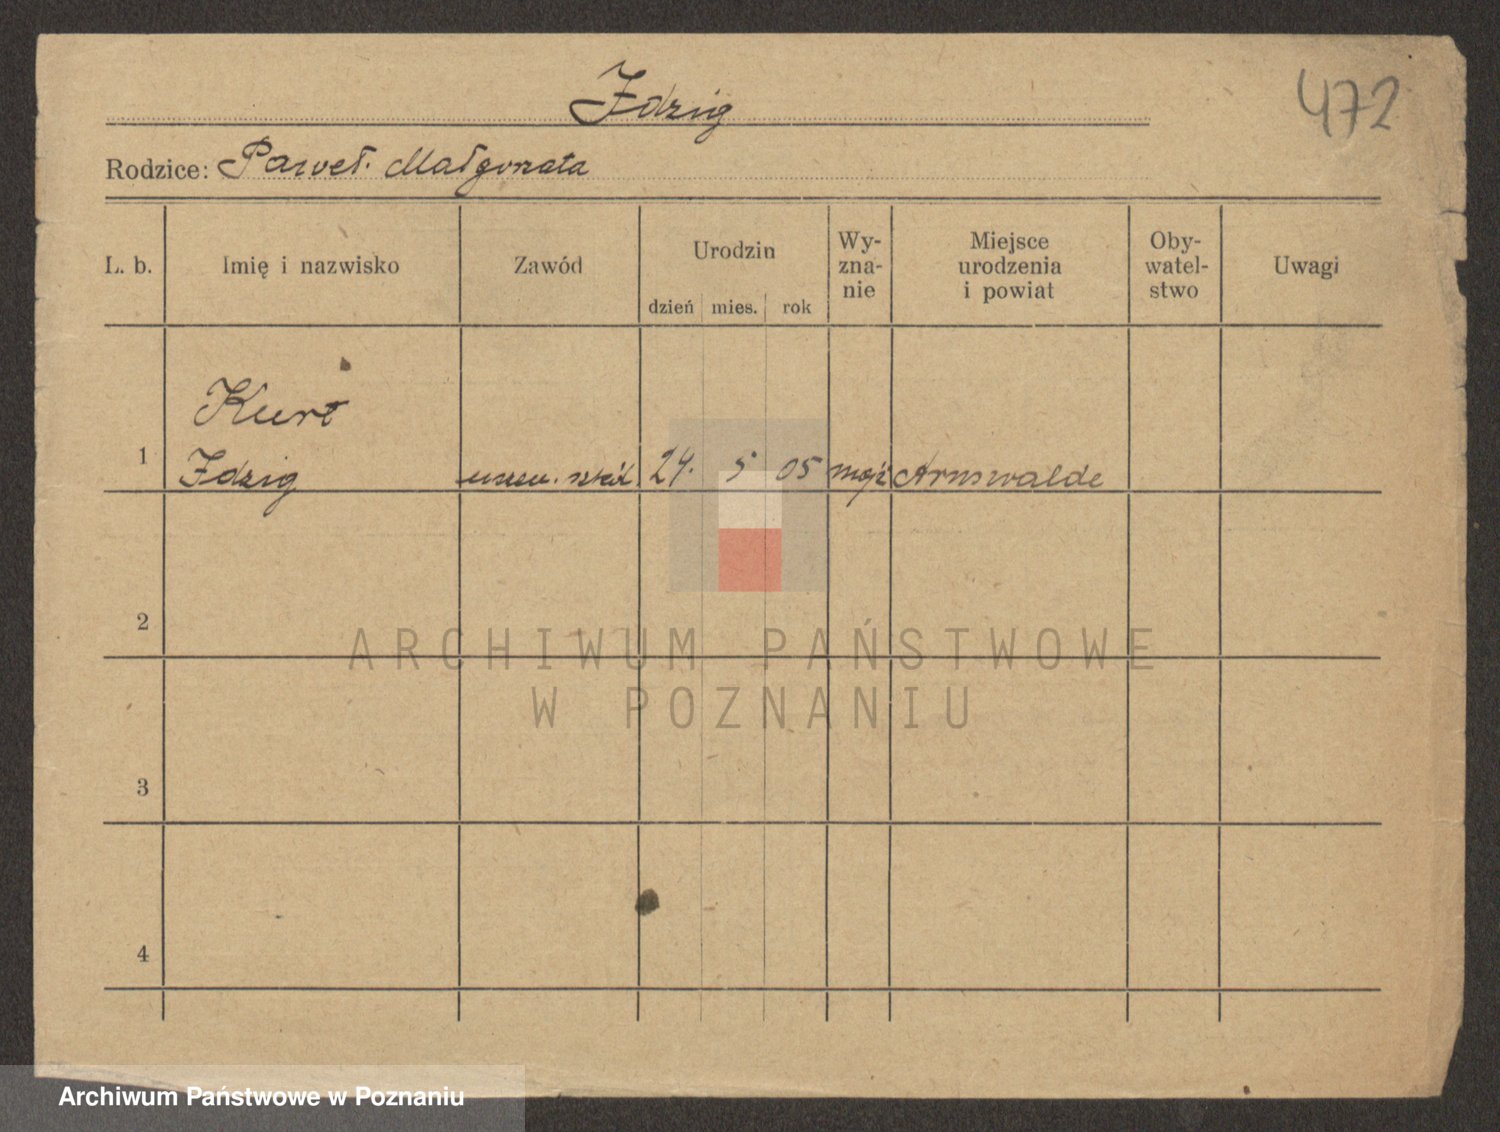 472
Idzig
Rodzice: Paweł. Małgorzata
L. b. Imię i nazwisko Zawód Urodzin dzień mies. rok Wy-zna-nie Miejsce urodzenia i powiat Oby-watel-stwo Uwagi
Kurt
1 Idzig szkół 24. 5 05 Arnswalde
2
ARCHIWUM PAŃSTWOWE
W POZNANIU
3
4
Archiwum Państwowe w Poznaniu